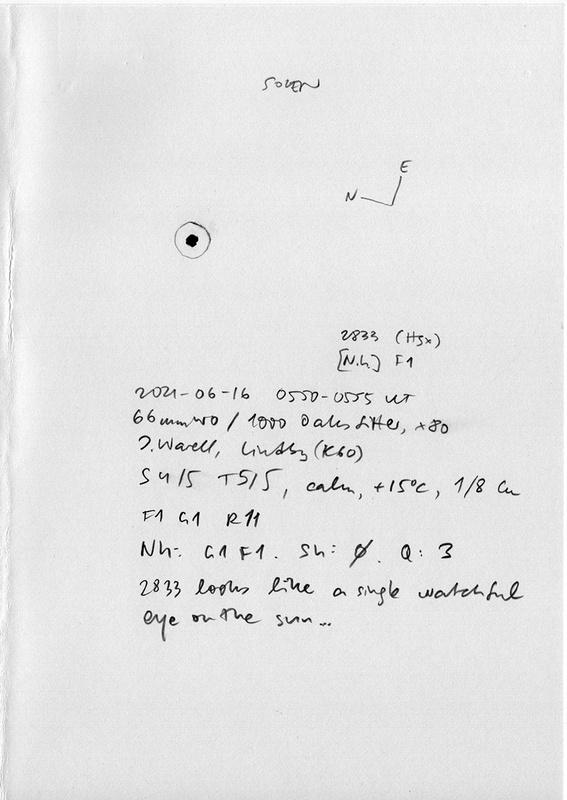 SOLEN
E
N
2833 (Hsx)
[N.h.] F1
2021-06-16 0550-0555 UT
66mm WO / 1000 Oaks filter, ×80
J. Warell, Lindby (K60)
S 4/5 T5/5, calm, +15°C, 1/8 Cu
F1 G1 R11
Nh: G1 F1. Sh: Ø. Q: 3
2833 looks like a single watchful
eye on the sun...